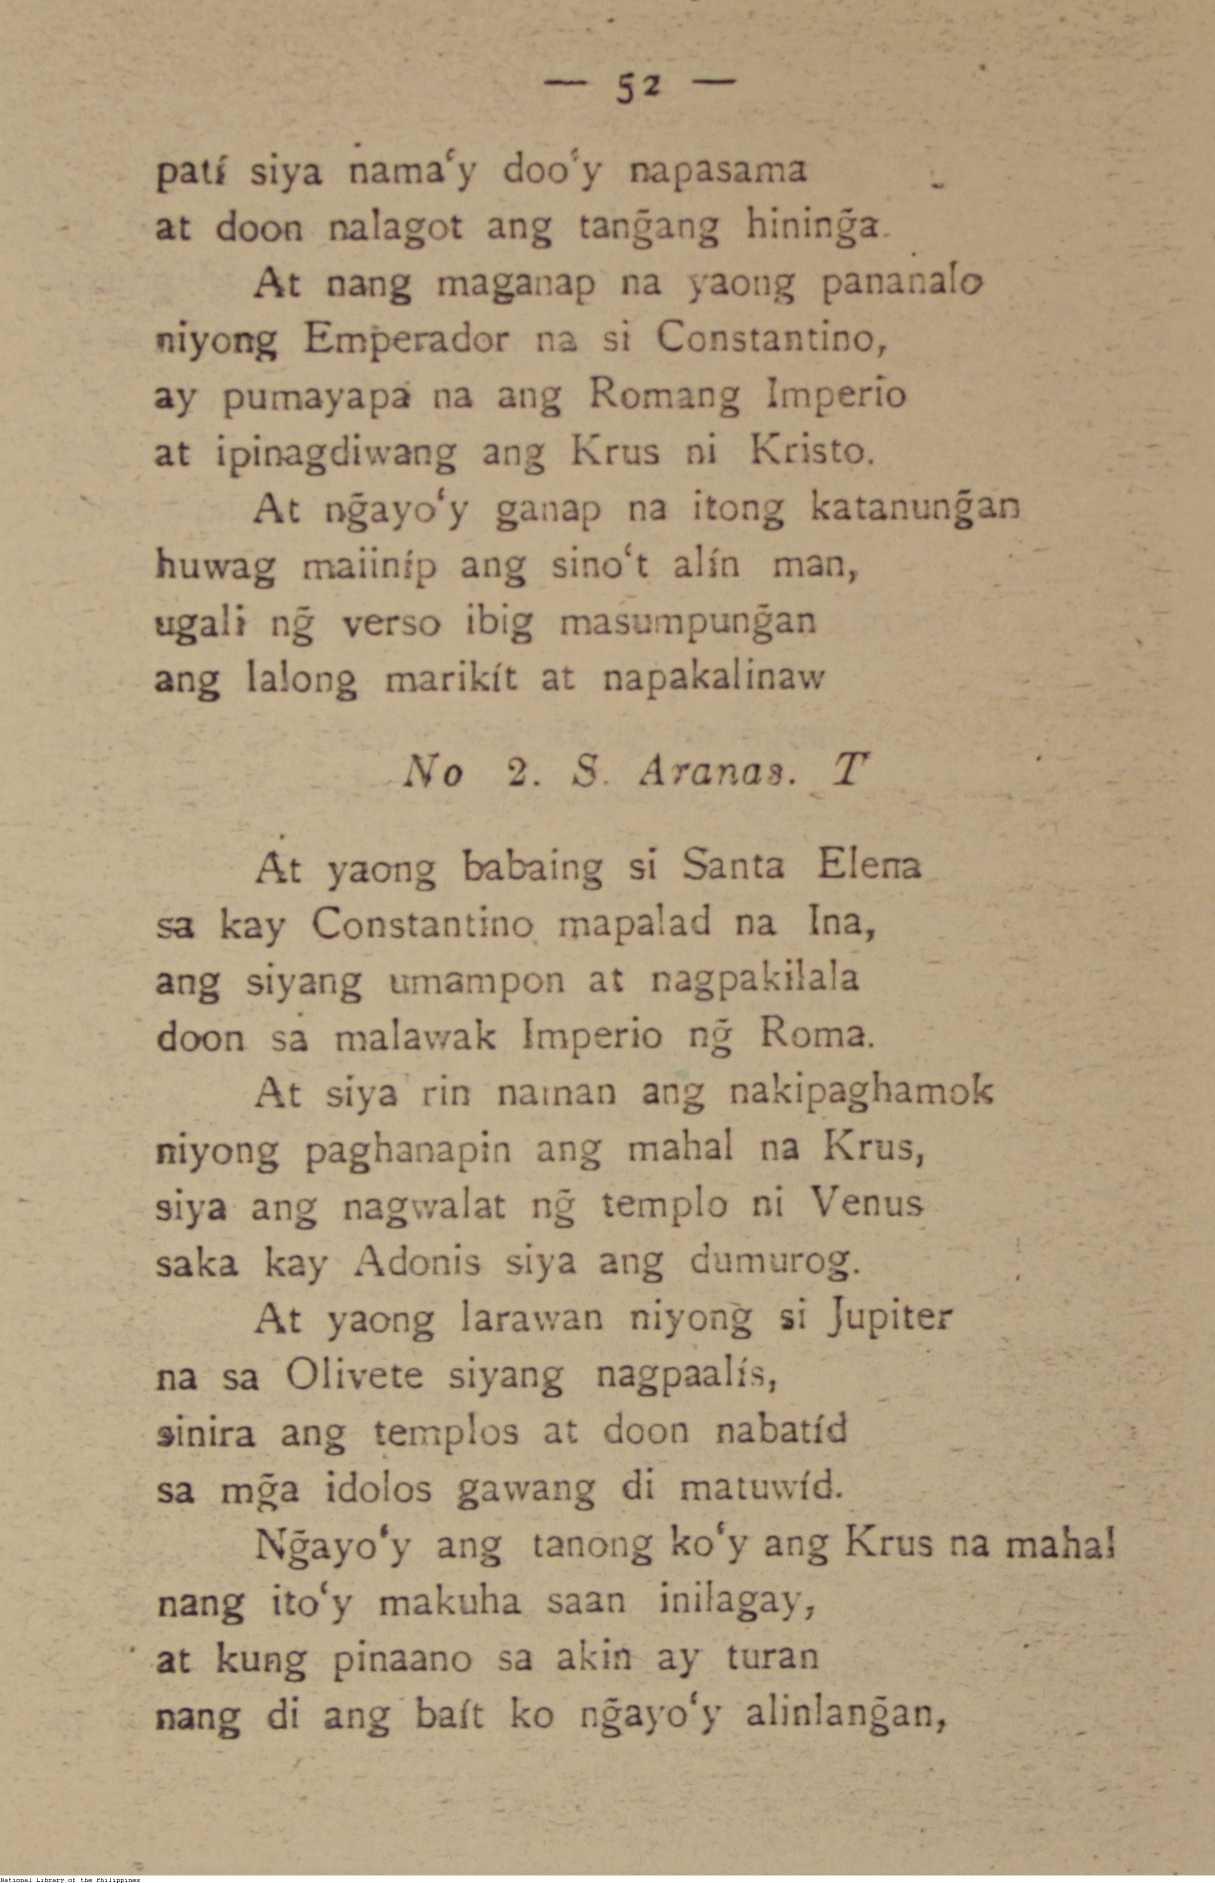 — 52 —
patí siya nama‘y doo‘y napasama
at doon nalagot ang tang̃ang hining̃a.
At nang maganap na yaong pananalo
niyong Emperador na si Constantino,
ay pumayapa na ang Romang Imperio
at ipinagdiwang ang Krus ni Kristo.
At ng̃ayo‘y ganap na itong katanung̃an
huwag maiiníp ang sino‘t alín man,
ugali ng̃ verso ibig masumpung̃an
ang lalong marikít at napakalinaw
No 2. S. Aranas. T
At yaong babaing si Santa Elena
sa kay Constantino mapalad na Ina,
ang siyang umampon at nagpakilala
doon sa malawak Imperio ng̃ Roma.
At siya rin naman ang nakipaghamok
niyong paghanapin ang mahal na Krus,
siya ang nagwalat ng̃ templo ni Venus
saka kay Adonis siya ang dumurog.
At yaong larawan niyong si Jupiter
na sa Olivete siyang nagpaalís,
sinira ang templos at doon nabatíd
sa mg̃a idolos gawang di matuwíd.
Ng̃ayo‘y ang tanong ko‘y ang Krus na mahal
nang ito‘y makuha saan inilagay,
at kung pinaano sa akin ay turan
nang di ang baít ko ng̃ayo‘y alinlang̃an,
National Library of the Philippines